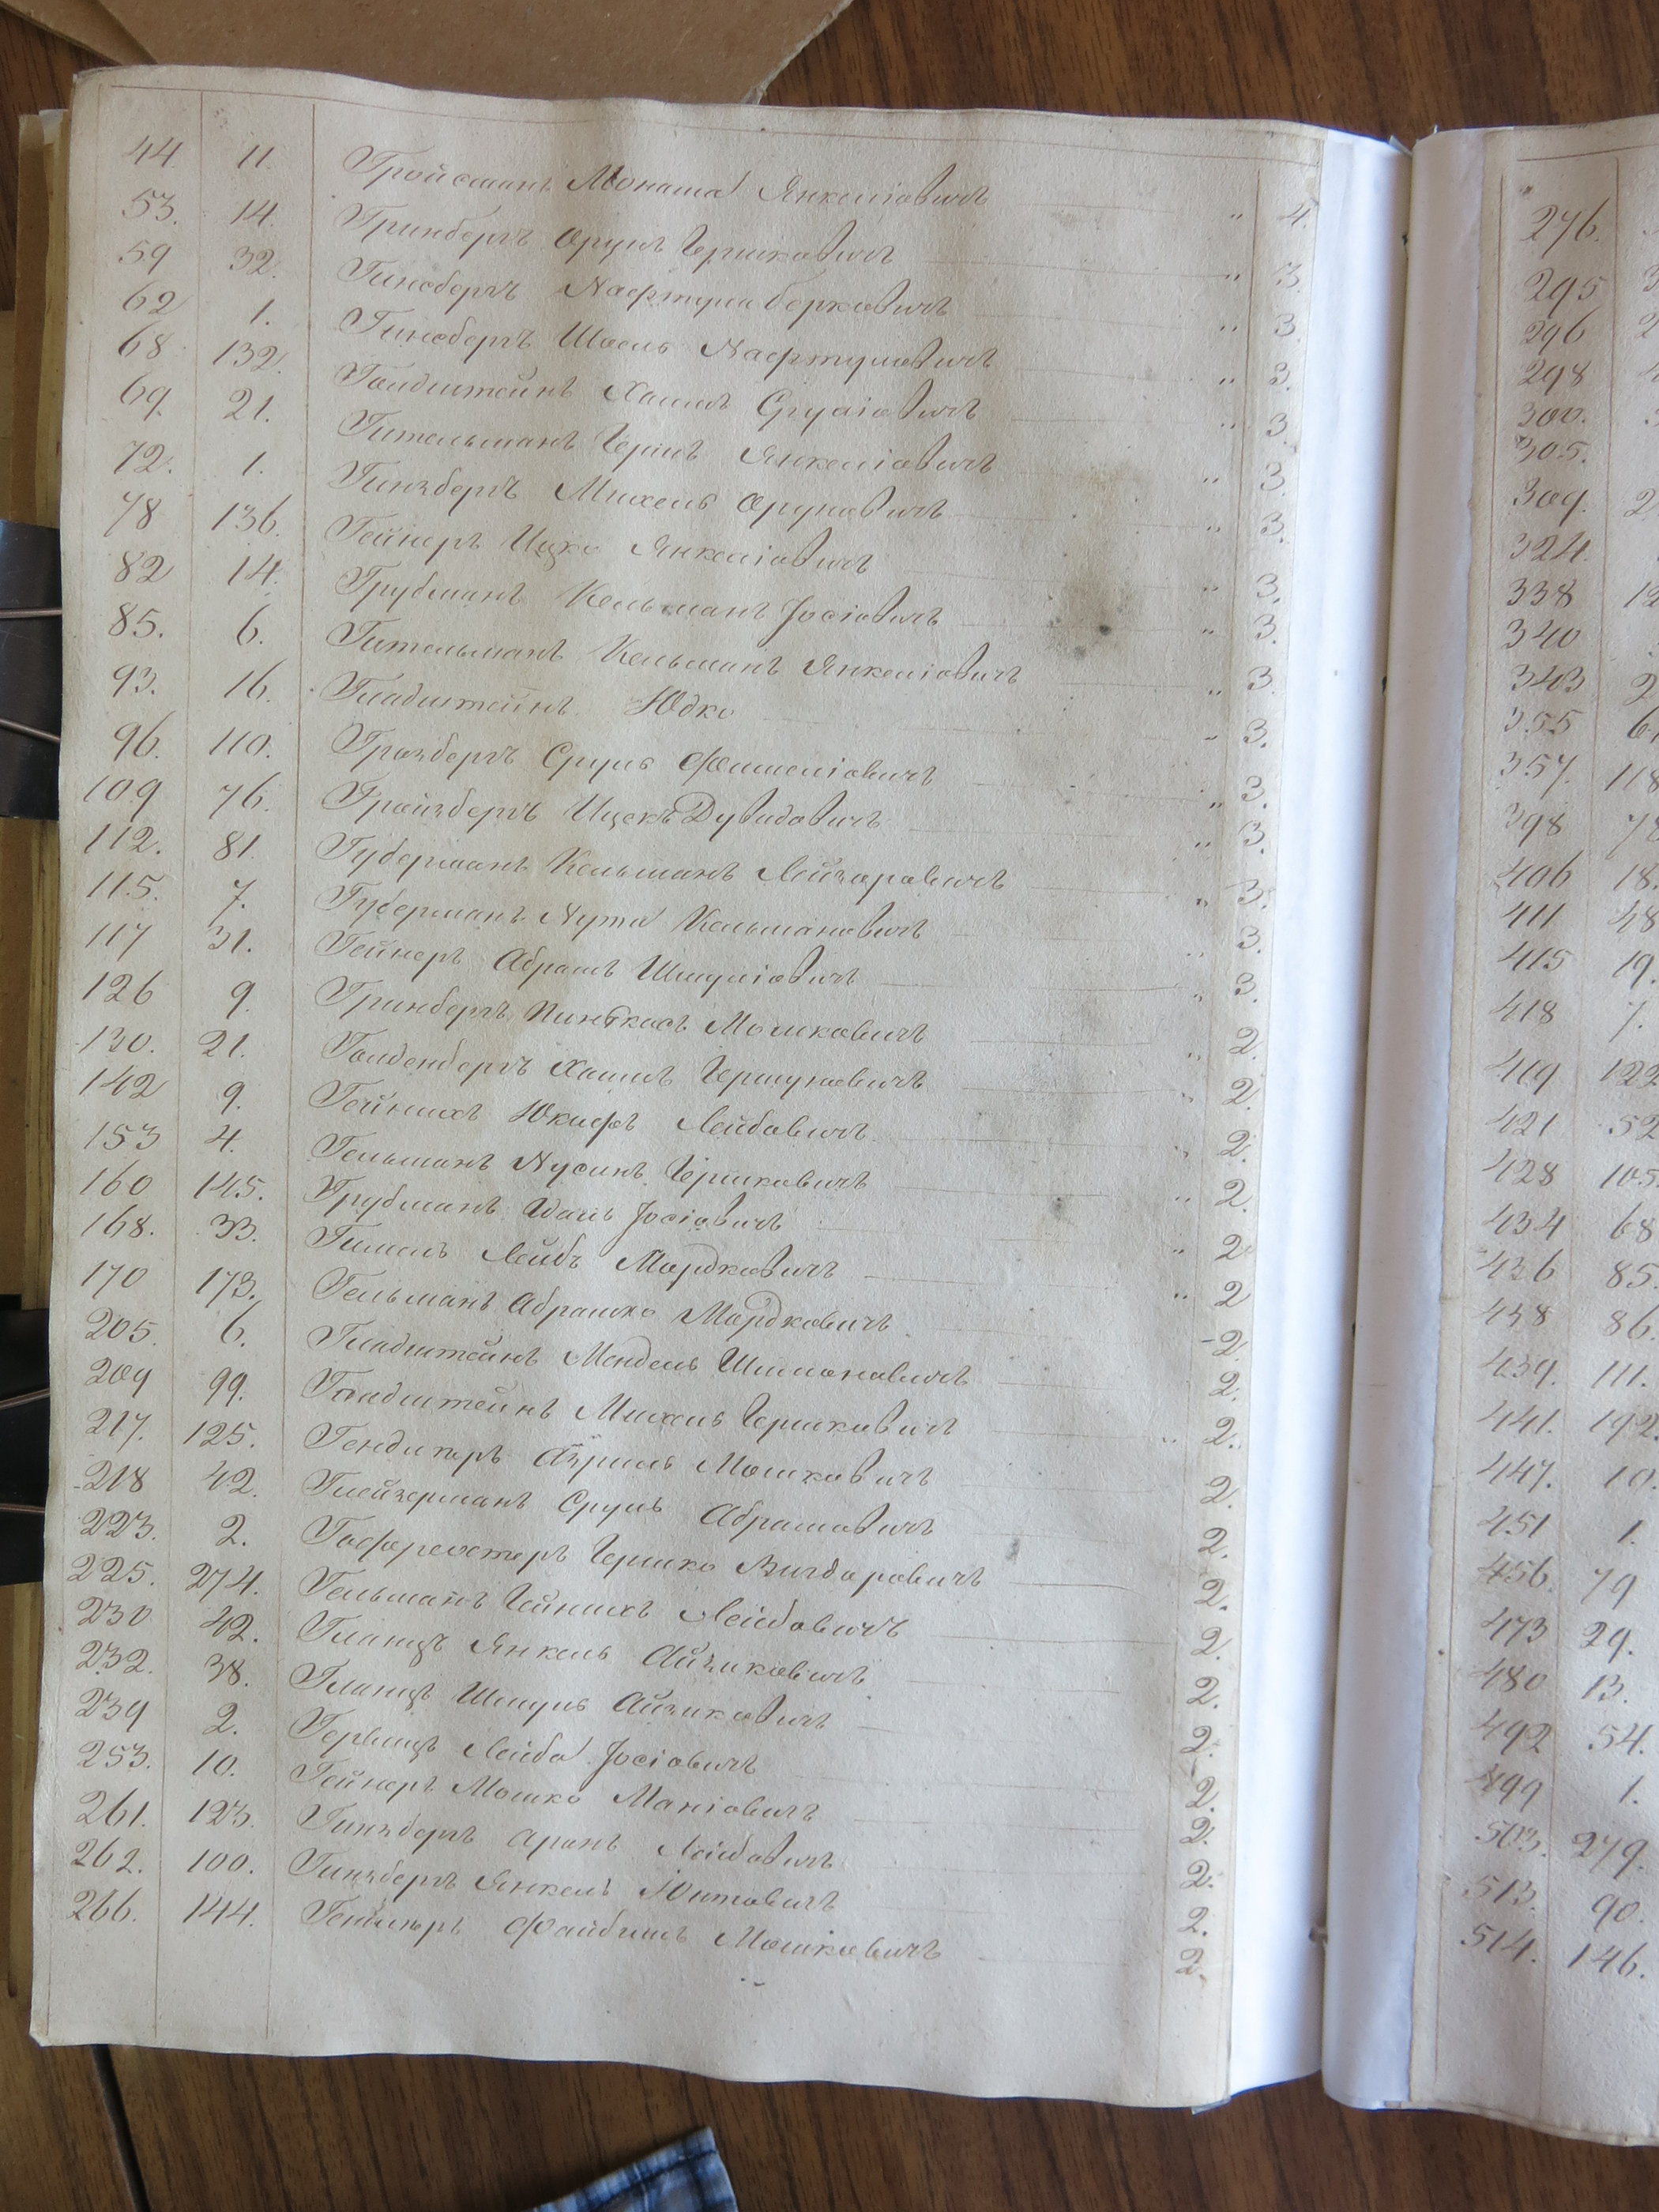 44. 11. Гройсманъ Монаша Янкеліовичъ " 4.
53. 14. Гринбергъ Срулъ Гершковичъ " 3.
59 32. Гинсбергъ Нафтула Берковичъ " 3.
62 1. Гинсбергъ Шоель Нафтуловичъ " 3.
68 132. Гольдштейнъ Хаимъ Сруліовичъ " 3.
69. 21. Гительманъ Гершъ Янкеліовичъ " 3.
72. 1. Гинзбергъ Михель Аруновичъ " 3.
78 136. Гейнеръ Ицко Янкеліовичъ " 3.
82 14. Грубманъ Кельманъ Іосіовичъ " 3.
85. 6. Гительманъ Кельманъ Янкеліовичъ " 3.
93. 16. Гладштейнъ Юдко - 3.
96. 110. Грозбергъ Сруль Фишеліовичъ " 3.
109 76. Гройзбергъ Ицекъ Дувидовичъ " 3.
112. 81. Губерманъ Кельманъ Лейзоровичъ " 3.
115. 7. Губерманъ Нута Кельмановичъ " 3.
117 31. Гейнеръ Абрамъ Шмуліовичъ " 3.
126 9. Гринбергъ Пинькасъ Мошковичъ " 2.
130. 21. Голденбергъ Хаимъ Гершуновичъ " 2.
142 9. Гейнихъ Юкифъ Лейбовичъ " 2.
153 4. Гельманъ Нусинъ Гершковичъ " 2.
160 145. Грубманъ Іосіовичъ " 2
168. 33. Гимель Лейбъ Мордковичъ " 2
170 173. Гельманъ Абрашко Мордковичъ - 2.
205. 6. Гладштейнъ Мендель Шимоновичъ 2.
209 99. Гольдштейнъ Михель Гершковичъ " 2.
217. 125. Гендлеръ Азріель Мошковичъ 2.
218 42. Глейзерманъ Сруль Абрамовичъ 2.
223. 2. Гершко Вигдоровичъ 2.
225. 274. Гельманъ Гейнихъ Лейбовичъ 2.
230 42. Гланцъ Янкель Айзиковичъ 2.
232. 38. Гланцъ Шмуль Айзиковичъ 2.
239 2. Гервицъ Лейба Іосіовичъ 2.
253. 10. Гейнеръ Мошко Маніовичъ 2.
261. 123. Гинзбергъ Аронъ Лейбовичъ 2.
262. 100. Гинзбергъ Янкель Юнтовичъ 2.
266. 144. Гендлеръ Файбишъ Мошковичъ 2.
276.
295 3
296 2
298
300.
305.
309. 2
324.
338 12
340
343 2
355 6
357. 118
398 78
406 18.
411 48
415 19.
418 7.
419 122
421 52
428 105.
434 68
436 85.
438 86.
439. 111.
441. 192.
447. 10.
451 1.
456. 79
473 29.
480 13.
492 54.
499 1.
503. 279.
513. 90.
514. 146.